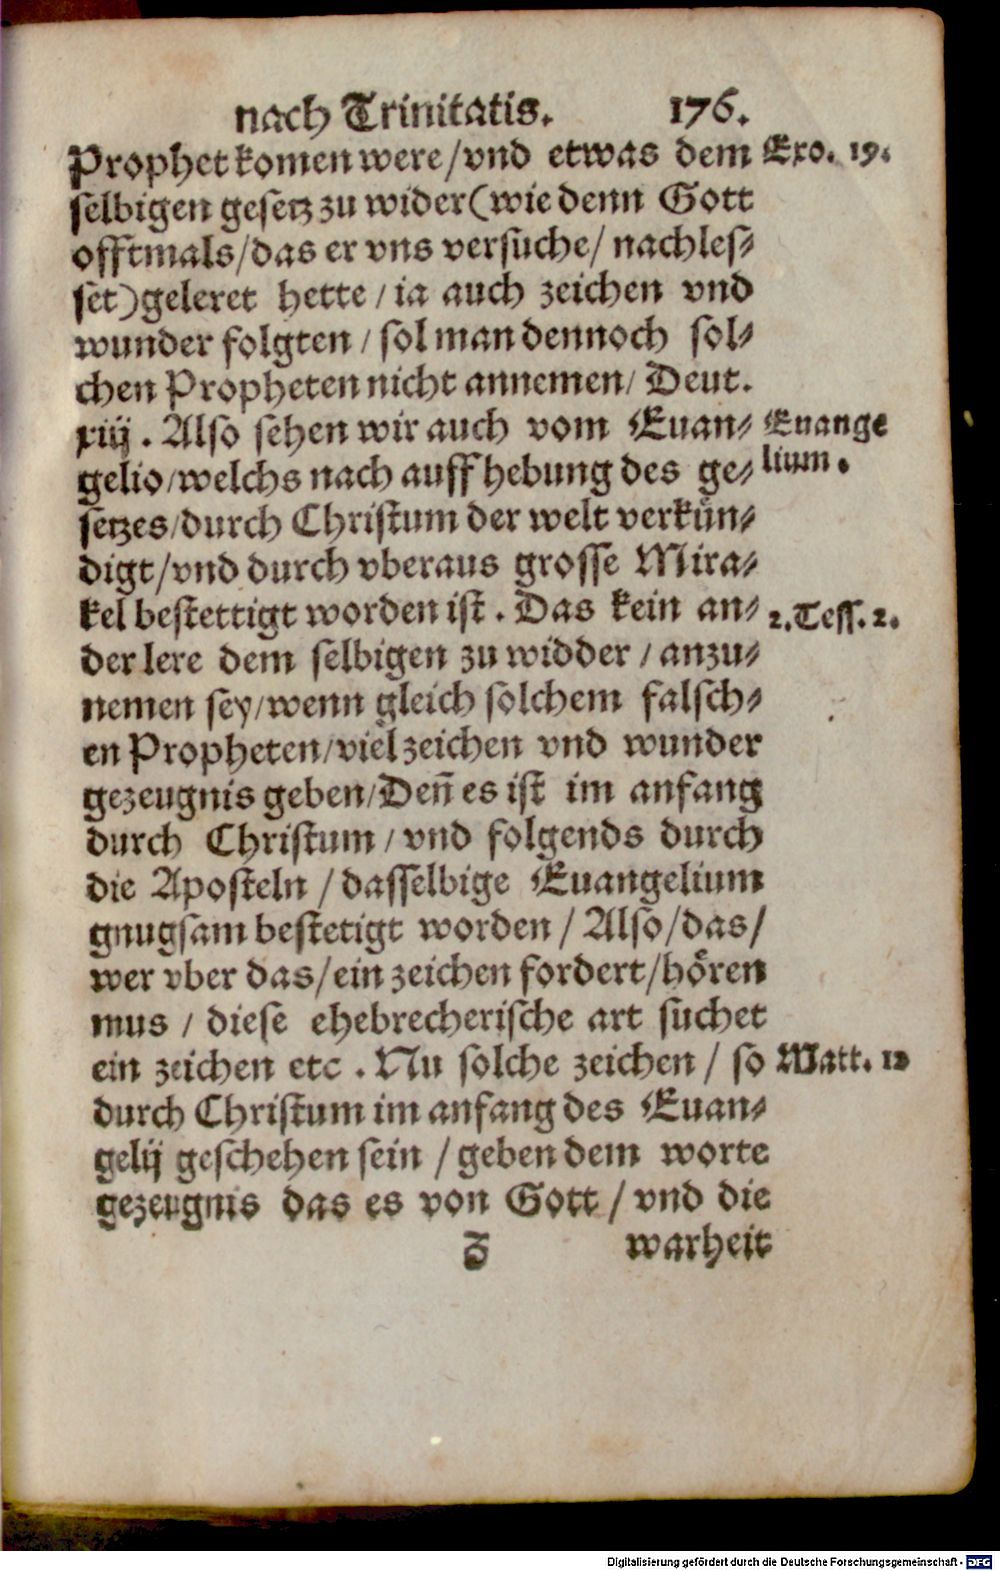 nach Trinitatis. 176.
Prophet komen were/vnd etwas dem Exo. 19.
selbigen gesetz zu wider(wie denn Gott
offtmals/das er vns versuche/ nachles⸗
set)geleret hette/ia auch zeichen vnd
wunder folgten/sol man dennoch sol⸗
chen Propheten nicht annemen/ Deut.
xiij. Also sehen wir auch vom Euan⸗ Euange
gelio/welchs nach auffhebung des ge⸗ lium.
setzes/durch Christum der welt verkün⸗
digt/vnd durch vberaus grosse Mira⸗
kel bestettigt worden ist. Das kein an⸗ 2.Tess. 2.
der lere dem selbigen zu widder/anzu⸗
nemen sey/wenn gleich solchem falsch⸗
en Propheten/viel zeichen vnd wunder
gezeugnis geben/Deñ es ist im anfang
durch Christum/vnd folgends durch
die Aposteln/dasselbige Euangelium
gnugsam bestetigt worden/Also/das/
wer vber das/ein zeichen fordert/hören
mus/diese ehebrecherische art suchet
ein zeichen etc. Nu solche zeichen/so Matt. 12
durch Christum im anfang des Euan⸗
gelij geschehen sein/geben dem worte
gezeugnis das es von Gott/vnd die
Z warheit
Digitalisierung gefördert durch die Deutsche Forschungsgemeinschaft - DFG